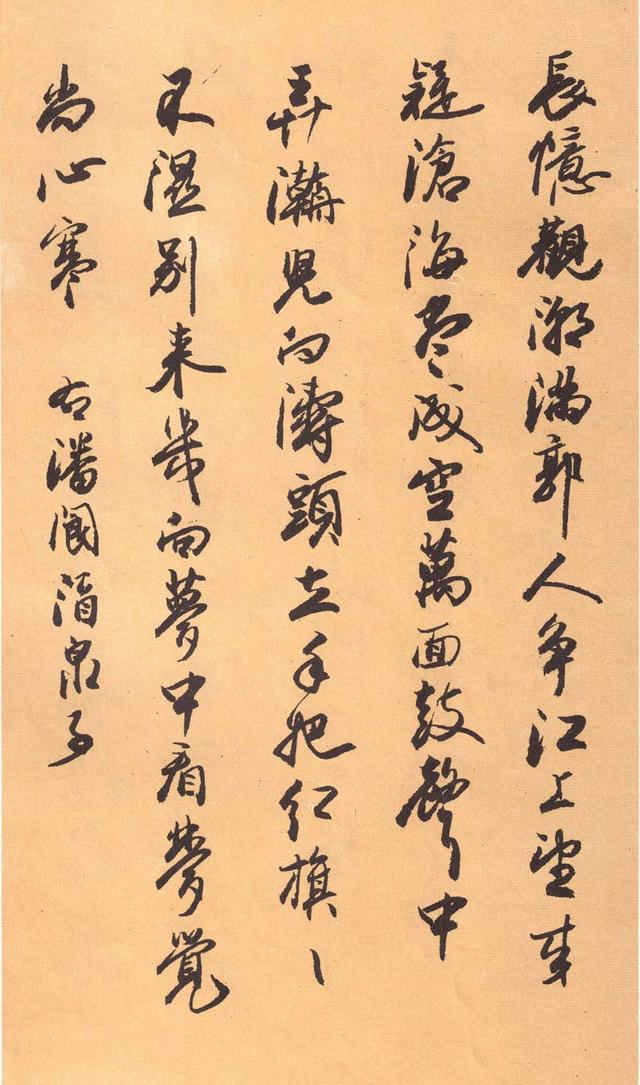 長憶觀潮滿郭人爭江上望來
疑滄海盡成空萬面鼓聲中
弄潮兒向濤頭立手把紅旗〻
不濕別來幾向夢中看夢覺
尚心寒 右潘閬酒泉子